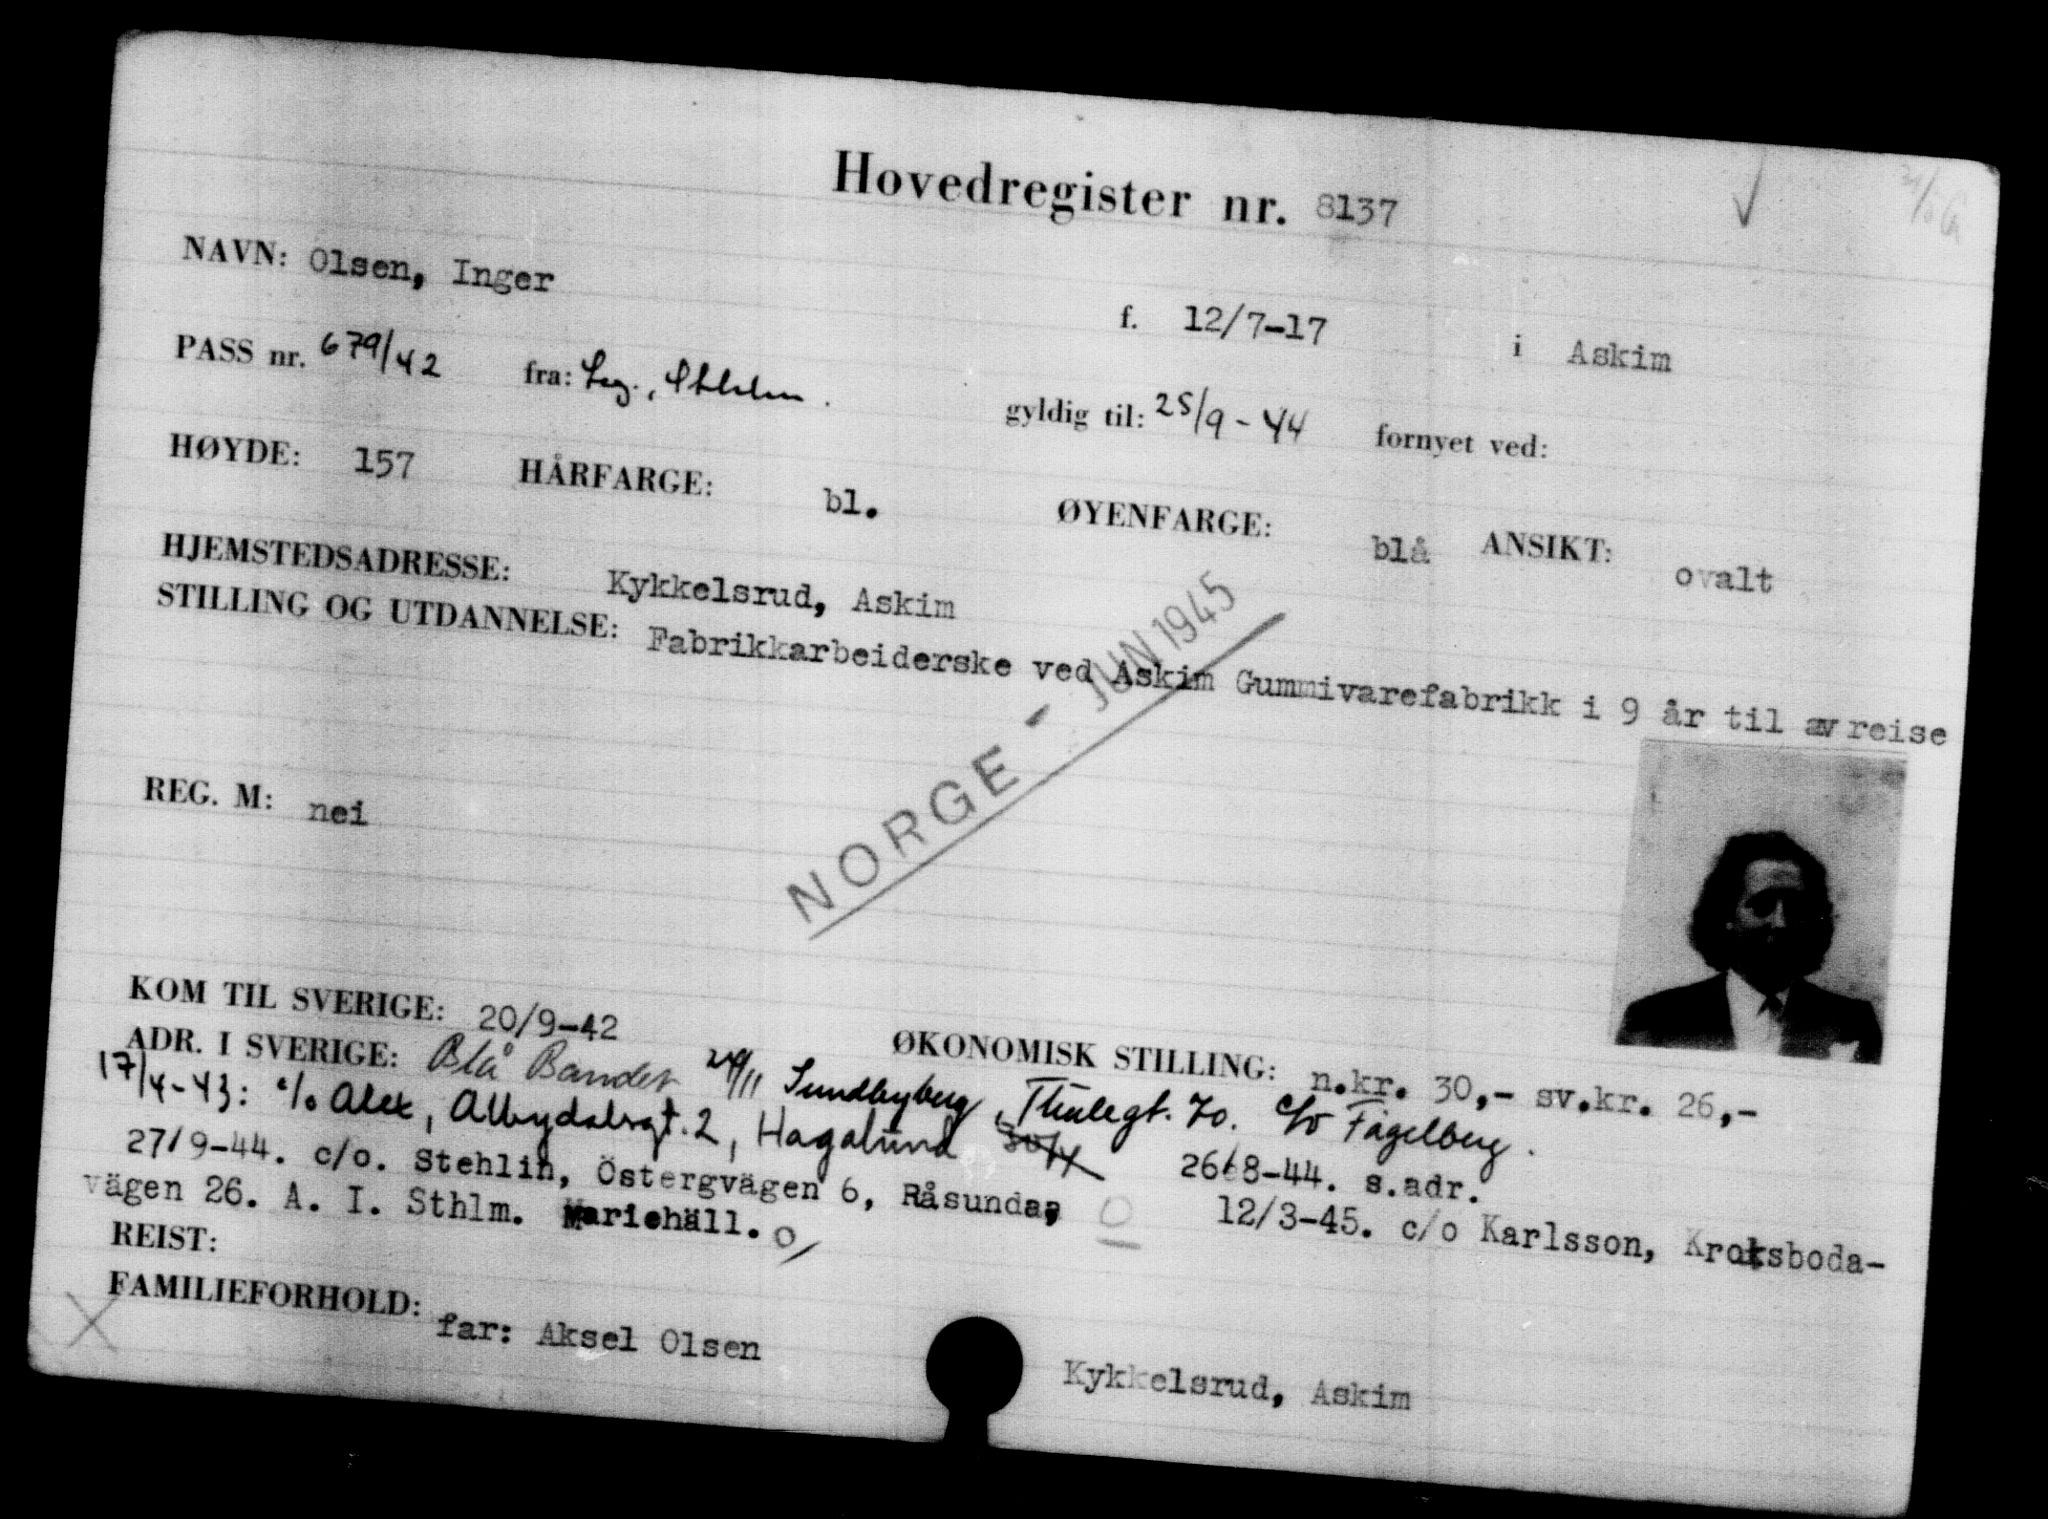 Hovedregister nr. 8137
NAVN: Olsen, Inger f. 12/7-17 i Askim
PASS nr. 679/42 fra: Leg., Sthlm. gyldig til: 25/9-44 fornyet ved:
HØYDE: 157 HÅRFARGE: bl. ØYENFARGE: blå ANSIKT: ovalt
HJEMSTEDSADRESSE: Kykkelsrud, Askim
STILLING OG UTDANNELSE: Fabrikkarbeiderske ved Askim Gummivarefabrikk i 9 år til avreise
NORGE - JUN 1945
REG. M: nei
KOM TIL SVERIGE: 20/9-42 ØKONOMISK STILLING: n.kr. 30,- sv.kr. 26,-
ADR. I SVERIGE: Blå Bandet 24/11 Sundbyberg, Thulegt. 70. c/o Fagelberg.
17/4-43: c/o Alex, Albydalsgt. 2, Hagalund 26/8-44. s.adr.
27/9-44. c/o. Stehlin, Östergvägen 6, Råsunda, 12/3-45. c/o Karlsson, Kroksboda-
vägen 26. A. I. Sthlm. Mariehäll.
REIST:
FAMILIEFORHOLD: far: Aksel Olsen Kykkelsrud, Askim